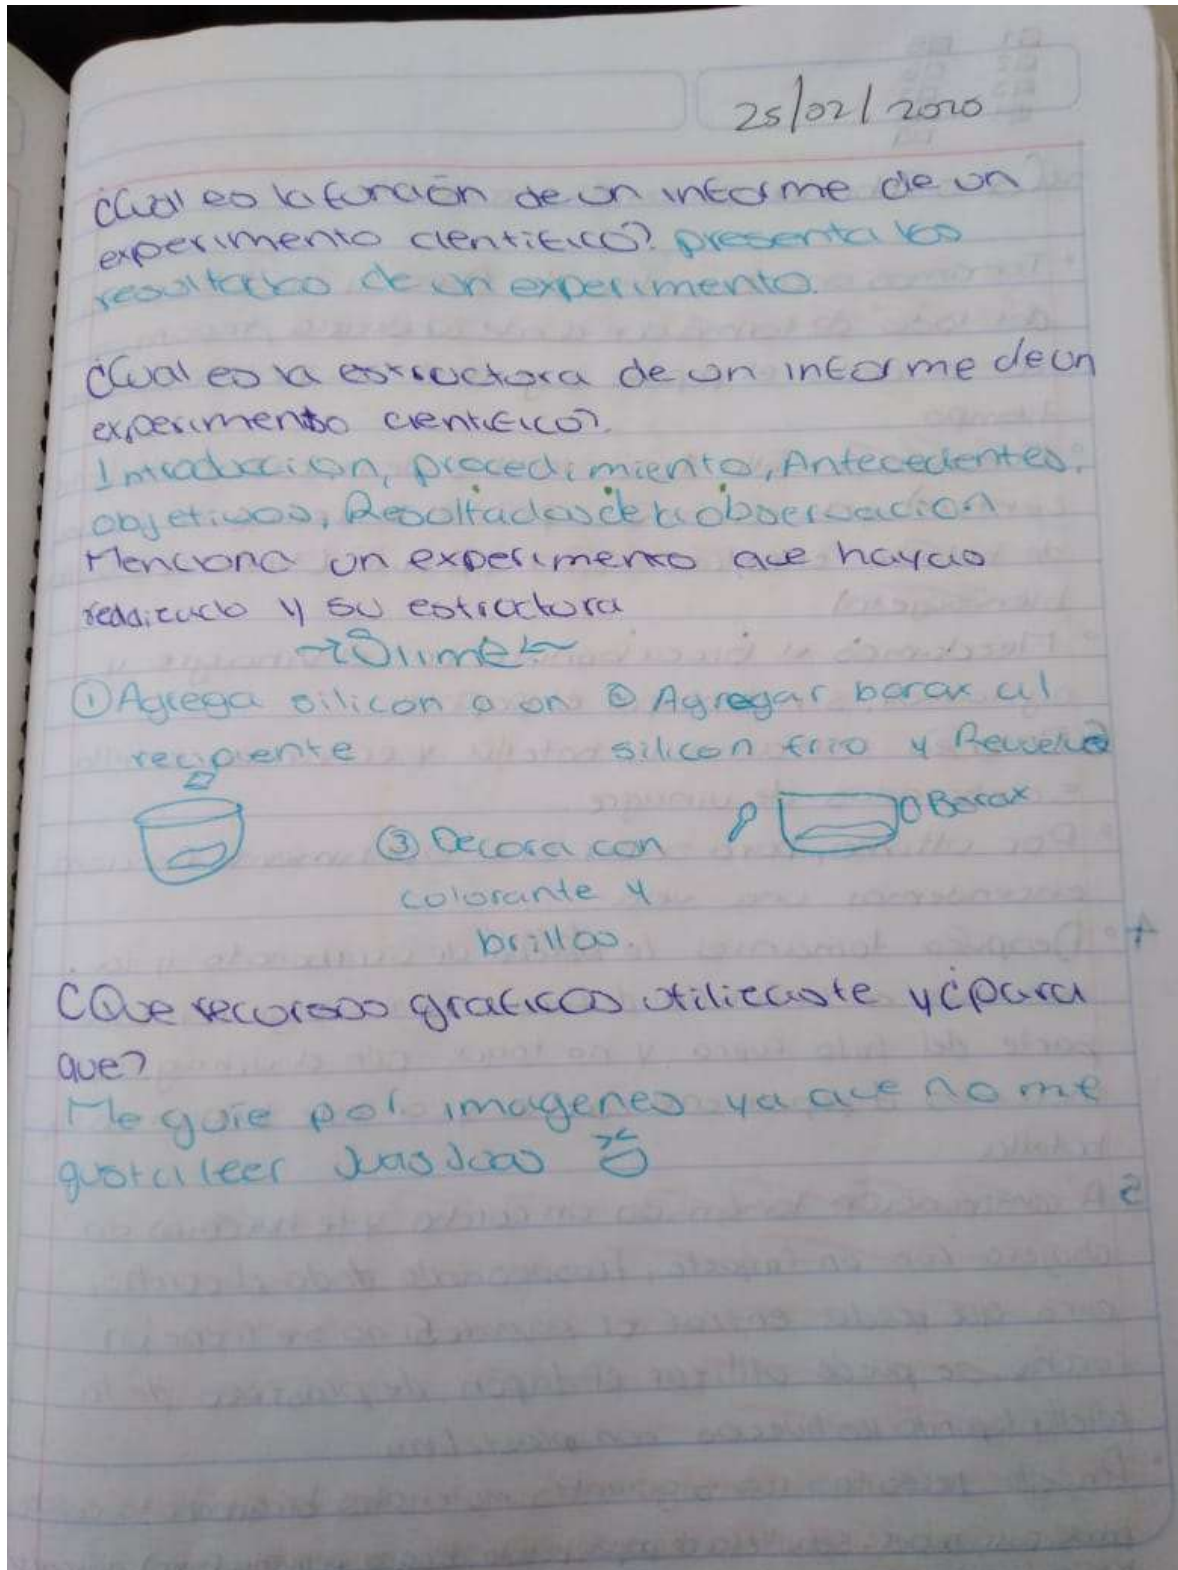 25/02/2020
¿Cual es la función de un informe de un
experimento cientifico? presenta los
resultados de un experimento.
¿Cual es la estructura de un informe de un
experimento cientifico?
Introduccion, procedimiento, Antecedentes,
objetivos, Resultados de la observacion
Menciona un experimento que hayas
realizado y su estructura
Slime
① Agrega silicon a un
recipiente
② Agregar borax al
silicon frio y Revuelve
Borax
③ Decora con
colorante y
brillos.
¿Que recursos graficos utilizaste y ¿para
que?
Me guie por imagenes ya que no me
gusta leer Juas Juas